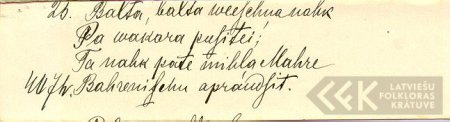 23. Balta, balta weeschna nahk
Pa wakara pusitei;
Ta nahk pate mihļa Mahre
Bahrenischu apraudsit.
LATVIEŠU
FOLKLORAS
KRĀTUVE